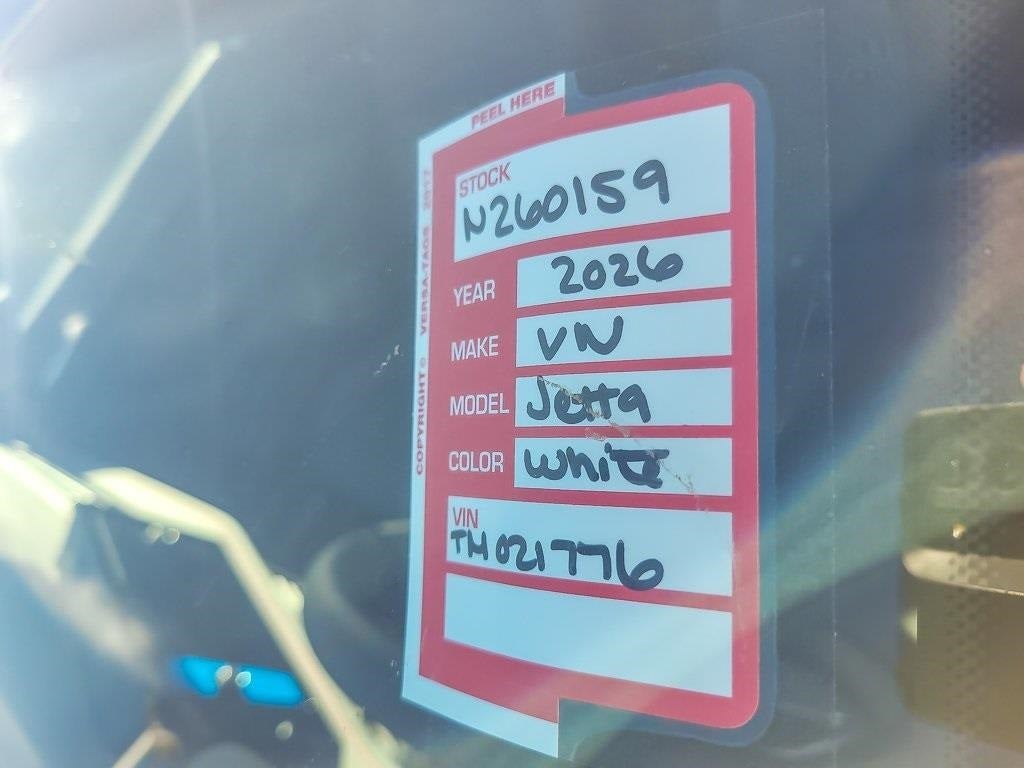 PEEL HERE
COPYRIGHT © VERSA-TAGS 2017
STOCK
N260159
YEAR 2026
MAKE VW
MODEL Jetta
COLOR White
VIN
TM021776